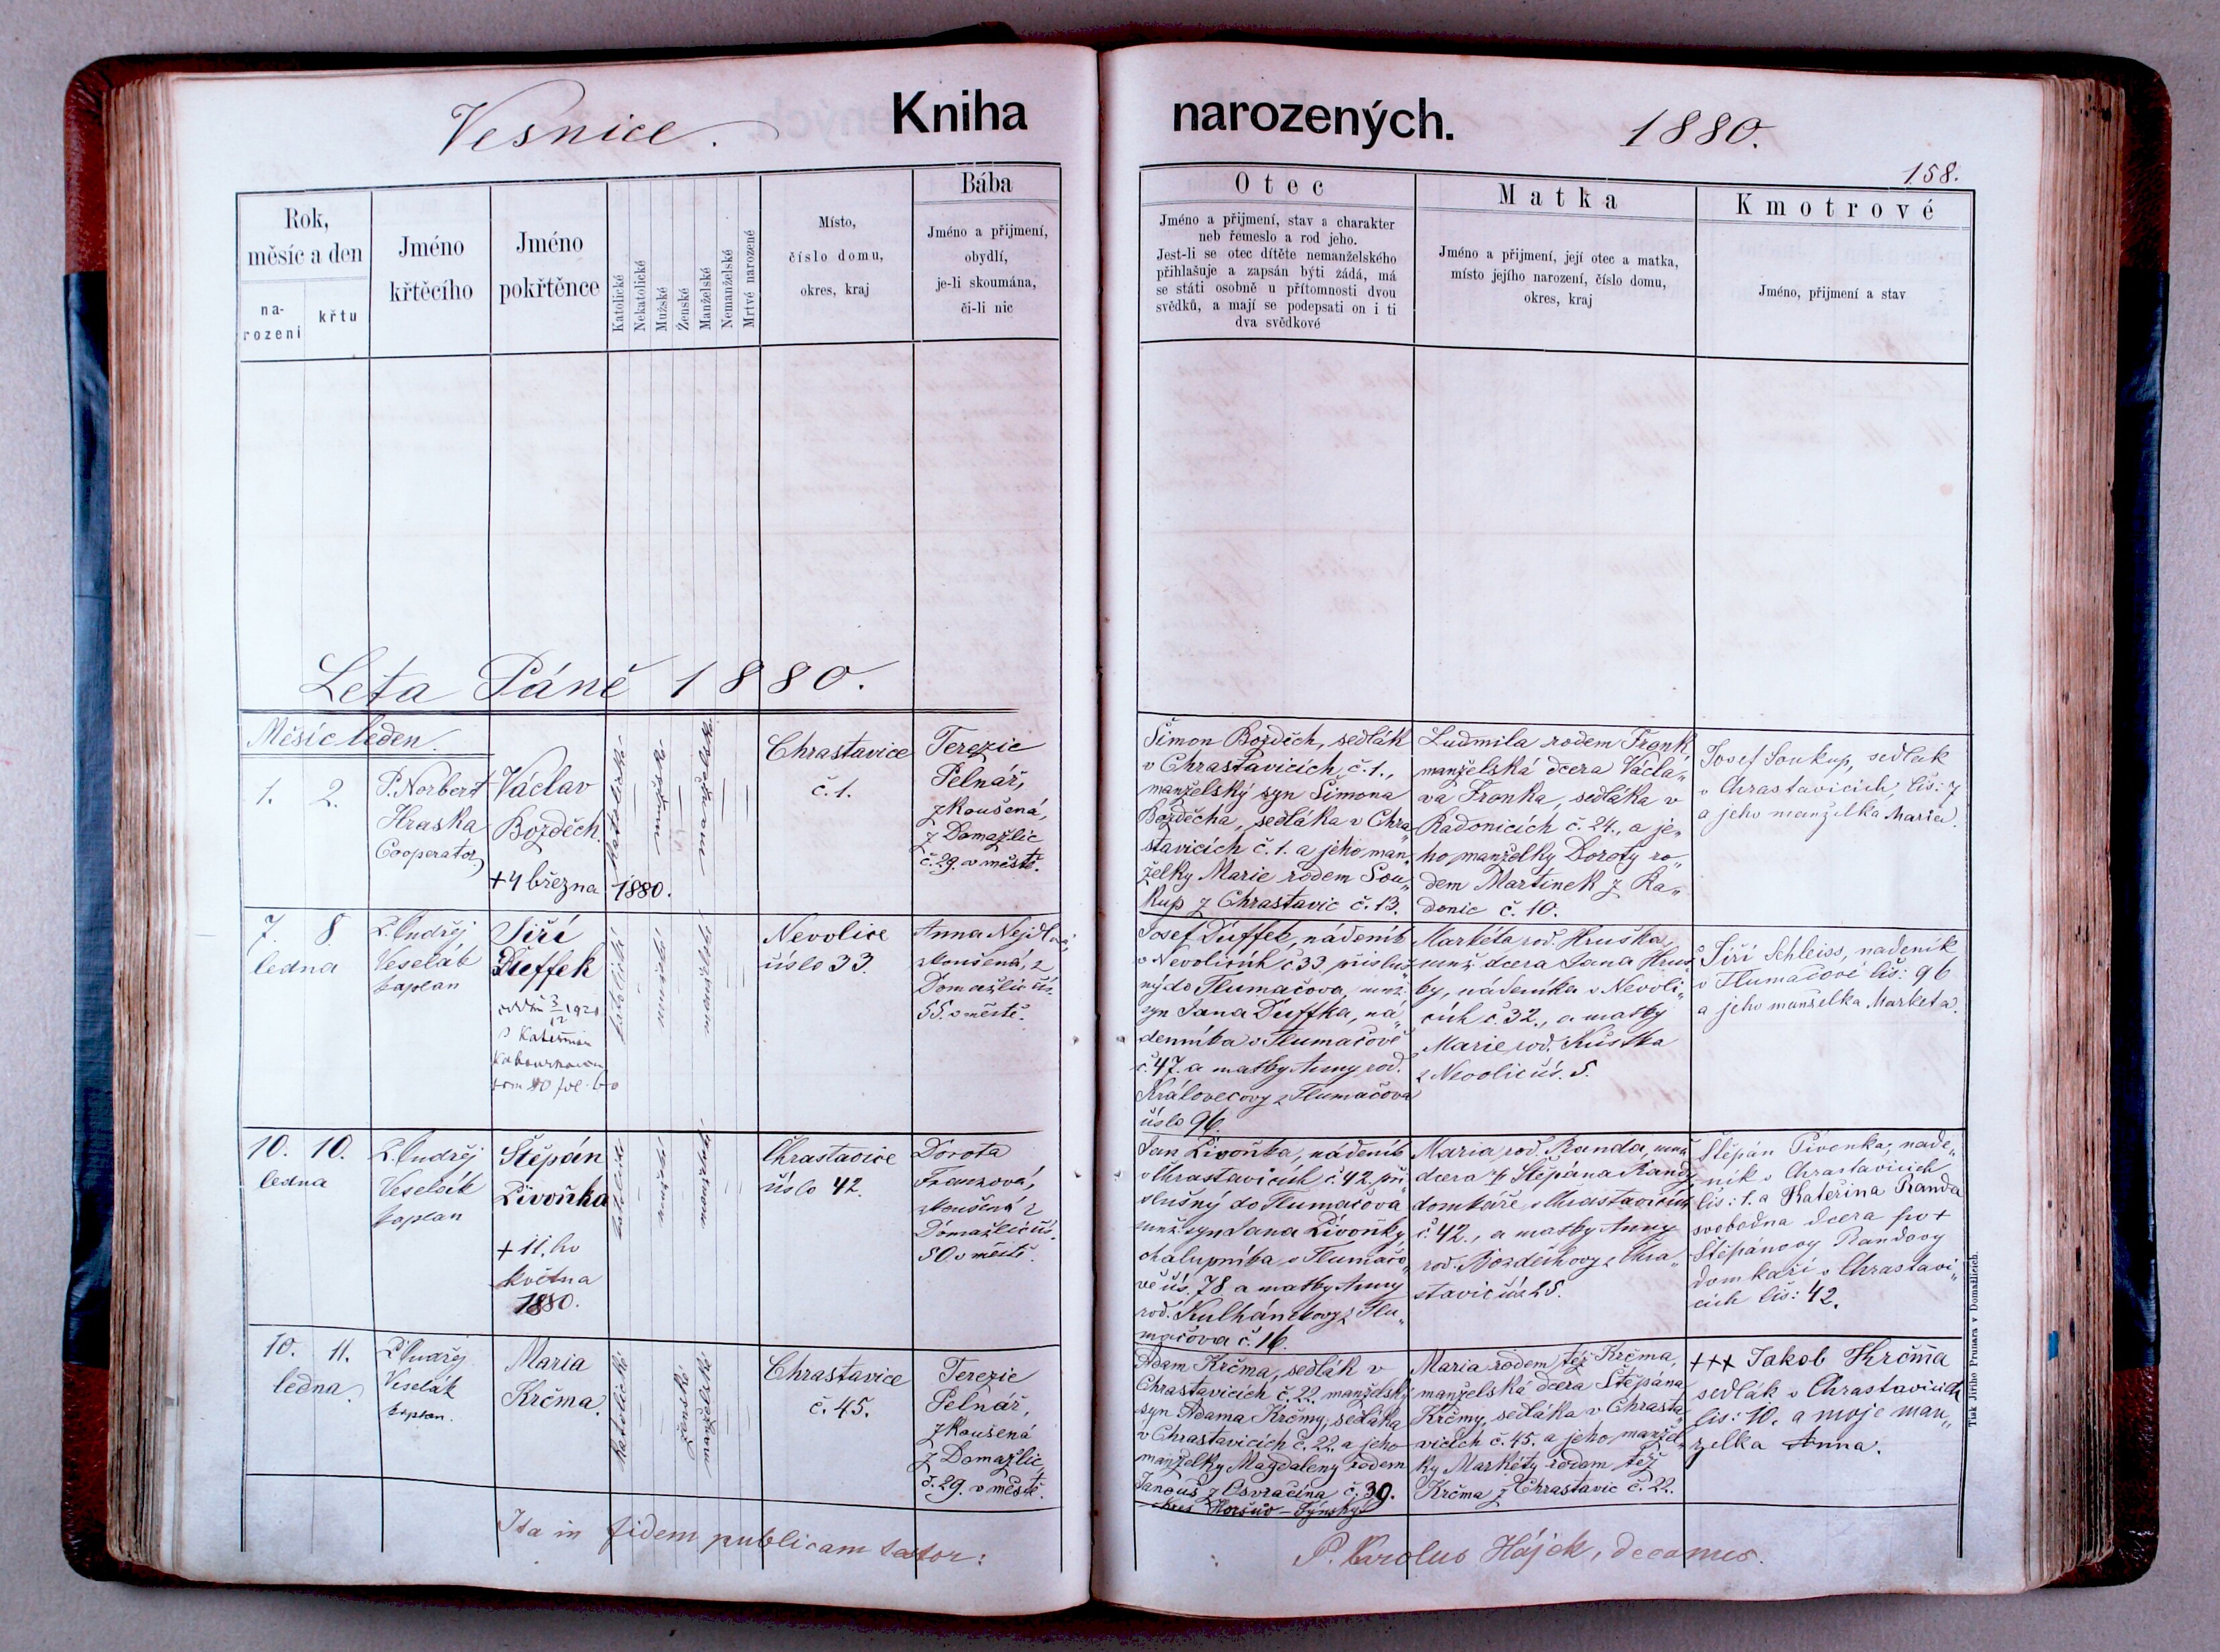 Vesnice.
Kniha
narozených.
1880.
158.
Rok,
měsíc a den
na-
rození
křtu
Jméno
křtěcího
Jméno
pokřtěnce
Katolické
Nekatolické
Mužské
Ženské
Manželské
Nemanželské
Mrtvé narozené
Místo,
číslo domu,
okres, kraj
Bába
Jméno a přijmení,
obydlí,
je-li skoumána,
či-li nic
Otec
Jméno a přijmení, stav a charakter
neb řemeslo a rod jeho.
Jest-li se otec dítěte nemanželského
přihlašuje a zapsán býti žádá, má
se státi osobně u přítomnosti dvou
svědků, a mají se podepsati on i ti
dva svědkové
Matka
Jméno a přijmení, její otec a matka,
místo jejího narození, číslo domu,
okres, kraj
Kmotrové
Jméno, přijmení a stav
Leta Páně 1880.
Měsíc leden.
1. 2.
P. Norbert
Hraska
Cooperator
Václav
Bozděch.
+4 března 1880.
katolické
mužské
manželské
Chrastavice
č. 1.
Terezie
Pelnář,
zkoušená,
z Domažlic
č. 29. v městě.
Šimon Bozděch, sedlák
v Chrastavicích č. 1.,
manželský syn Šimona
Bozděcha, sedláka v Chra„
stavicích č. 1. a jeho man„
želky Marie rodem Sou„
kup z Chrastavic č. 13.
Ludmila rodem Fronk
manželská dcera Václa„
va Fronka, sedláka v
Radonicích č. 24., a je„
ho manželky Doroty ro„
dem Martinek z Ra„
donic č. 10.
Josef Soukup, sedlak
v Chrastavicich, čis: 7
a jeho manželka Maria.
7. 8
ledna
P. Ondřej
Veselák
kaplan
Jiří
Dueffek
1920
Nevolice
číslo 33.
Anna
zkoušená, z
Domažlic čís.
55. v městě.
Josef Düffek, nádeník
v Nevolicích č. 33. přísluš„
ný do Tlumačova, manž.
syn Jana Düffka, ná„
denníka v Tlumačově
č. 47. a matky Anny rod.
Královcovy z Tlumačova
číslo 96.
Markéta rod. Hruška,
manž. dcera Jana Hruš„
ky, nádeníka v Nevoli„
cích č. 32., a matky
Marie, rod. Kuštka
z Nevolic čís. 5.
Jiří Schleiss, nadeník
v Tlumačově čis: 96
a jeho manželka Marketa.
10. 10.
ledna
P. Ondřej
Veselák
kaplan
Štěpán
Živoňka
+ 11. ho
května
1880.
Chrastavice
číslo 42.
Dorota
Franzová,
zkoušená z
Domažlic čís.
50 v městě.
Jan Živoňka, nádeník
v Chrastavicích č. 42. pří„
slušný do Tlumačova
manž. syn Jana Živoňky,
chalupníka v Tlumačo„
vě čís. 78 a matky Anny
rod. Kulhánkovy z Tlu„
mačova č. 16.
Maria rod. Randa, manž.
dcera + Štěpána Randy,
domkáře v Chrastavicích
č. 42., a matky Anny
rod. Bozděchovy z Chra„
stavic čís. 25.
Štěpán Pivonka, nade„
ník v Chrastavicich
čis: 1. a Kateřina Randa
svobodna dcera po +
Štěpánovy Randovy
domkaři v Chrastavi„
cich čis: 42.
10. 11.
ledna
P. Ondřej
Veselák
kaplan.
Maria
Krčma.
katolické
ženské
manželské
Chrastavice
č. 45.
Terezie
Pelnář,
zkoušená
z Domažlic,
č. 29. v městě.
Adam Krčma, sedlák v
Chrastavicích č. 22. manželský
syn Adama Krčmy, sedláka
v Chrastavicích č. 22. a jeho
manželky Magdaleny rodem
Janouš z Osvračína č. 39.
okres Horšův-Týnský.
Maria rodem též Krčma,
manželská dcera Štěpána
Krčmy, sedláka v Chrasta„
vicích č. 45. a jeho manžel„
ky Markéty rodem též
Krčma z Chrastavic č. 22.
+++ Jakob Krčma
sedlák v Chrastavicich
čis: 10. a moje man„
zelka Anna.
Ita in fidem publicam testor:
P. Carolus Hájek, decanus.
Tisk Jiřího Prunara v Domažlicích.